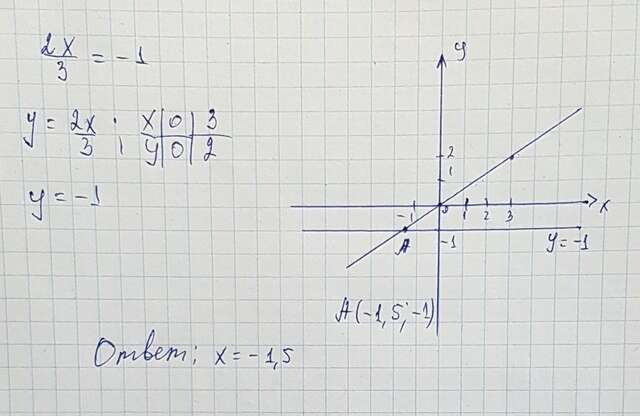 2x/3 = -1
y = 2x/3 ; x | 0 | 3
y | 0 | 2
y = -1
y
2
1
-1 0 1 2 3 x
A -1 y = -1
A(-1,5; -1)
Ответ: x = -1,5